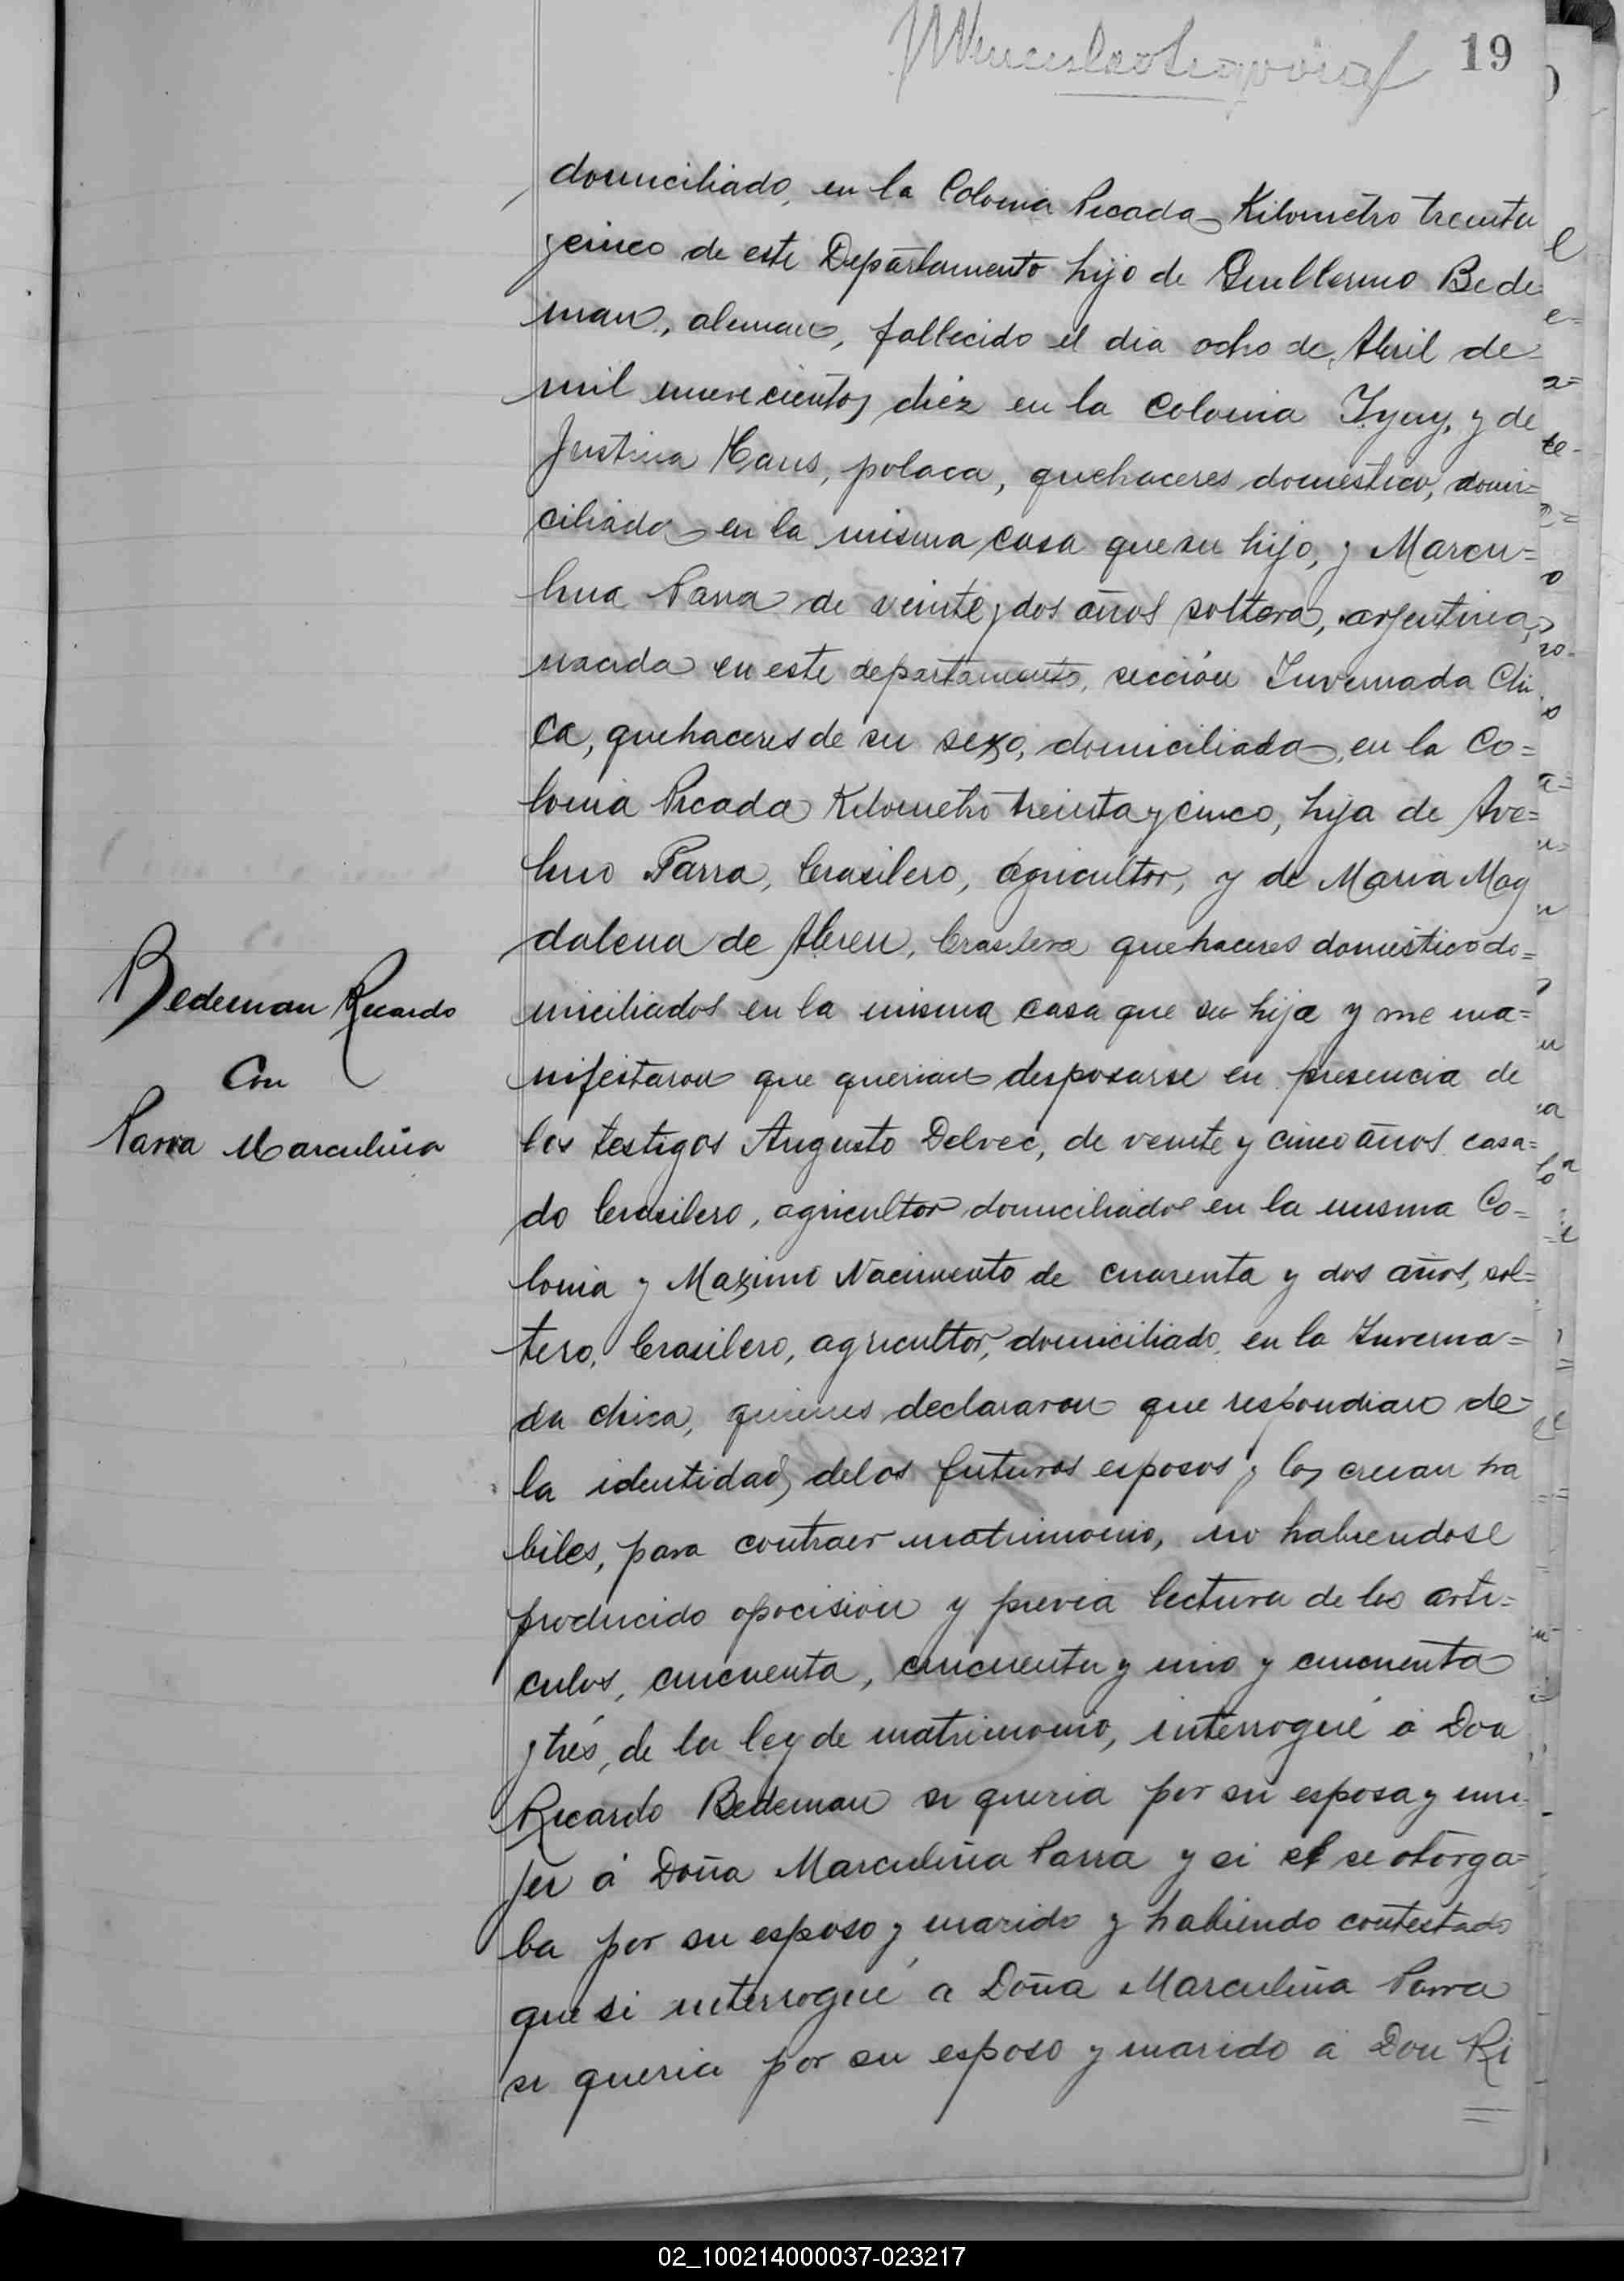 19
domiciliado, en la Colonia Picada Kilometro treinta
y cinco de este Departamento hijo de Guillermo Bede
man, aleman, fallecido el dia ocho de Abril de
mil nuevecientos diez en la Colonia Yyuy, y de
Justina Haus, polaca, quehaceres domestico, domi=
ciliada en la misma casa que su hijo, y Marcu=
lina Parra de veinte y dos años soltera, argentina,
nacida en este departamento, sección Invernada Chi
ca, quehaceres de su sexo, domiciliada, en la Co=
lonia Picada Kilometro treinta y cinco, hija de Ave=
lino Parra, brasilero, agricultor, y de Maria Mag
dalena de Abreu, brasilera quehaceres domestico do=
miciliados en la misma casa que su hija y me ma=
nifestaron que querian desposarse en presencia de
los testigos Augusto Delvec, de veinte y cinco años casa=
do brasilero, agricultor domiciliados en la misma Co=
lonia y Maximo Nacimento de cuarenta y dos años, sol=
tero, brasilero, agricultor, domiciliado, en la Inverna=
da chica, quienes declararon que respondian de
la identidad, de los futuros esposos y los creian ha
biles, para contraer matrimonio, no habiendose
producido opocision y previa lectura de los arti=
culos, cincuenta, cincuenta y uno y cincuenta
y trés, de la ley de matrimonio, interrogué á Don
Ricardo Bedeman si queria por su esposa y mu
jer á Doña Marculina Parra y si el se otorga=
ba por su esposo y marido y habiendo contestado
que si interrogué a Doña Marculina Parra
si queria por su esposo y marido á Don Ri
Bedeman Ricardo
Con
Parra Marculina
02_100214000037-023217